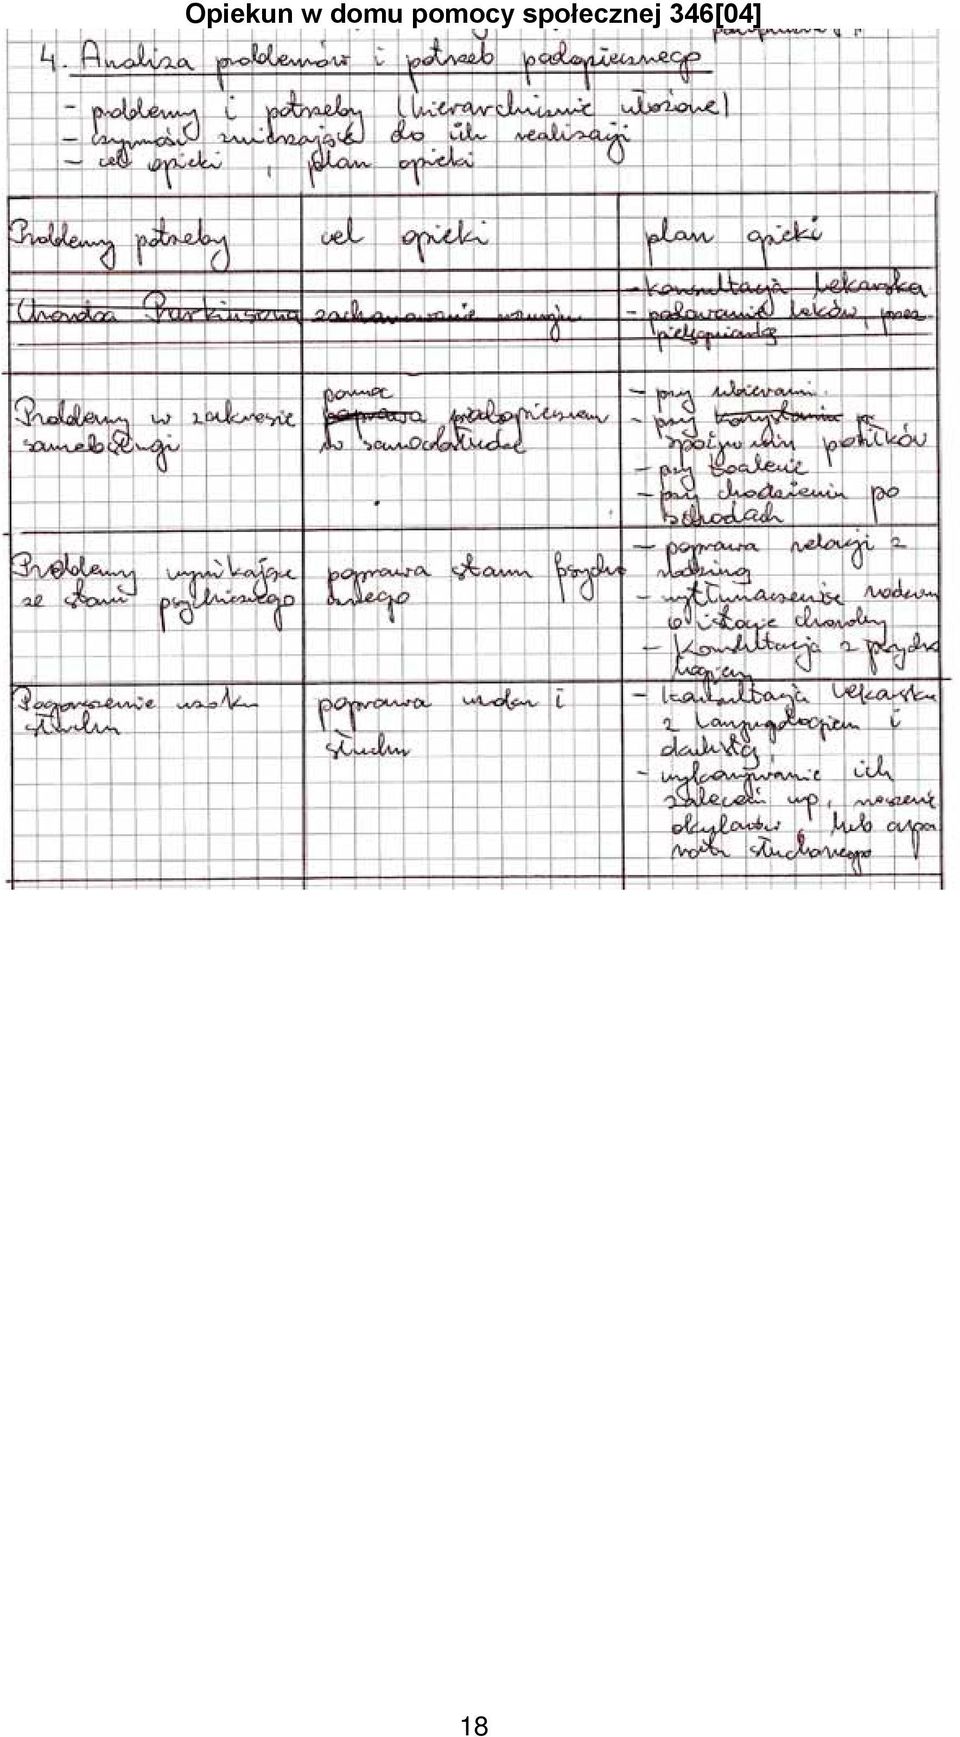 Opiekun w domu pomocy społecznej 346[04]
4. Analiza problemów i potrzeb podopiecznego
- problemy i potrzeby (hierarchicznie ułożone)
- czynności zmierzające do ich realizacji
- cel opieki, plan opieki
Problemy potrzeby
cel opieki
plan opieki
Choroba Parkinsona
zachowanie
- konsultacja lekarska
- podawanie leków, przez
pielęgniarkę
Problemy w zakresie
samoobsługi
pomoc
poprawa podopiecznem
w samoobsłudze
- przy ubieraniu.
- przy korzystania
spożywaniu posiłków
- przy toalecie
- przy chodzeniu po
schodach
Problemy wynikające
ze stanu psychicznego
poprawa stanu psychi
cznego
- poprawa relacji z
rodziną
- wytłumaczenie rodziny
o istocie choroby
- Konsultacja z psycho
logiem
Pogorszenie wzoku
słuchu
poprawa wzoku i
słuchu
- konsultacja lekarska
z laryngologiem i
okulistą
- wykonywanie ich
zaleceń np. noszenie
okularów, lub apa
ratu słuchowego
18